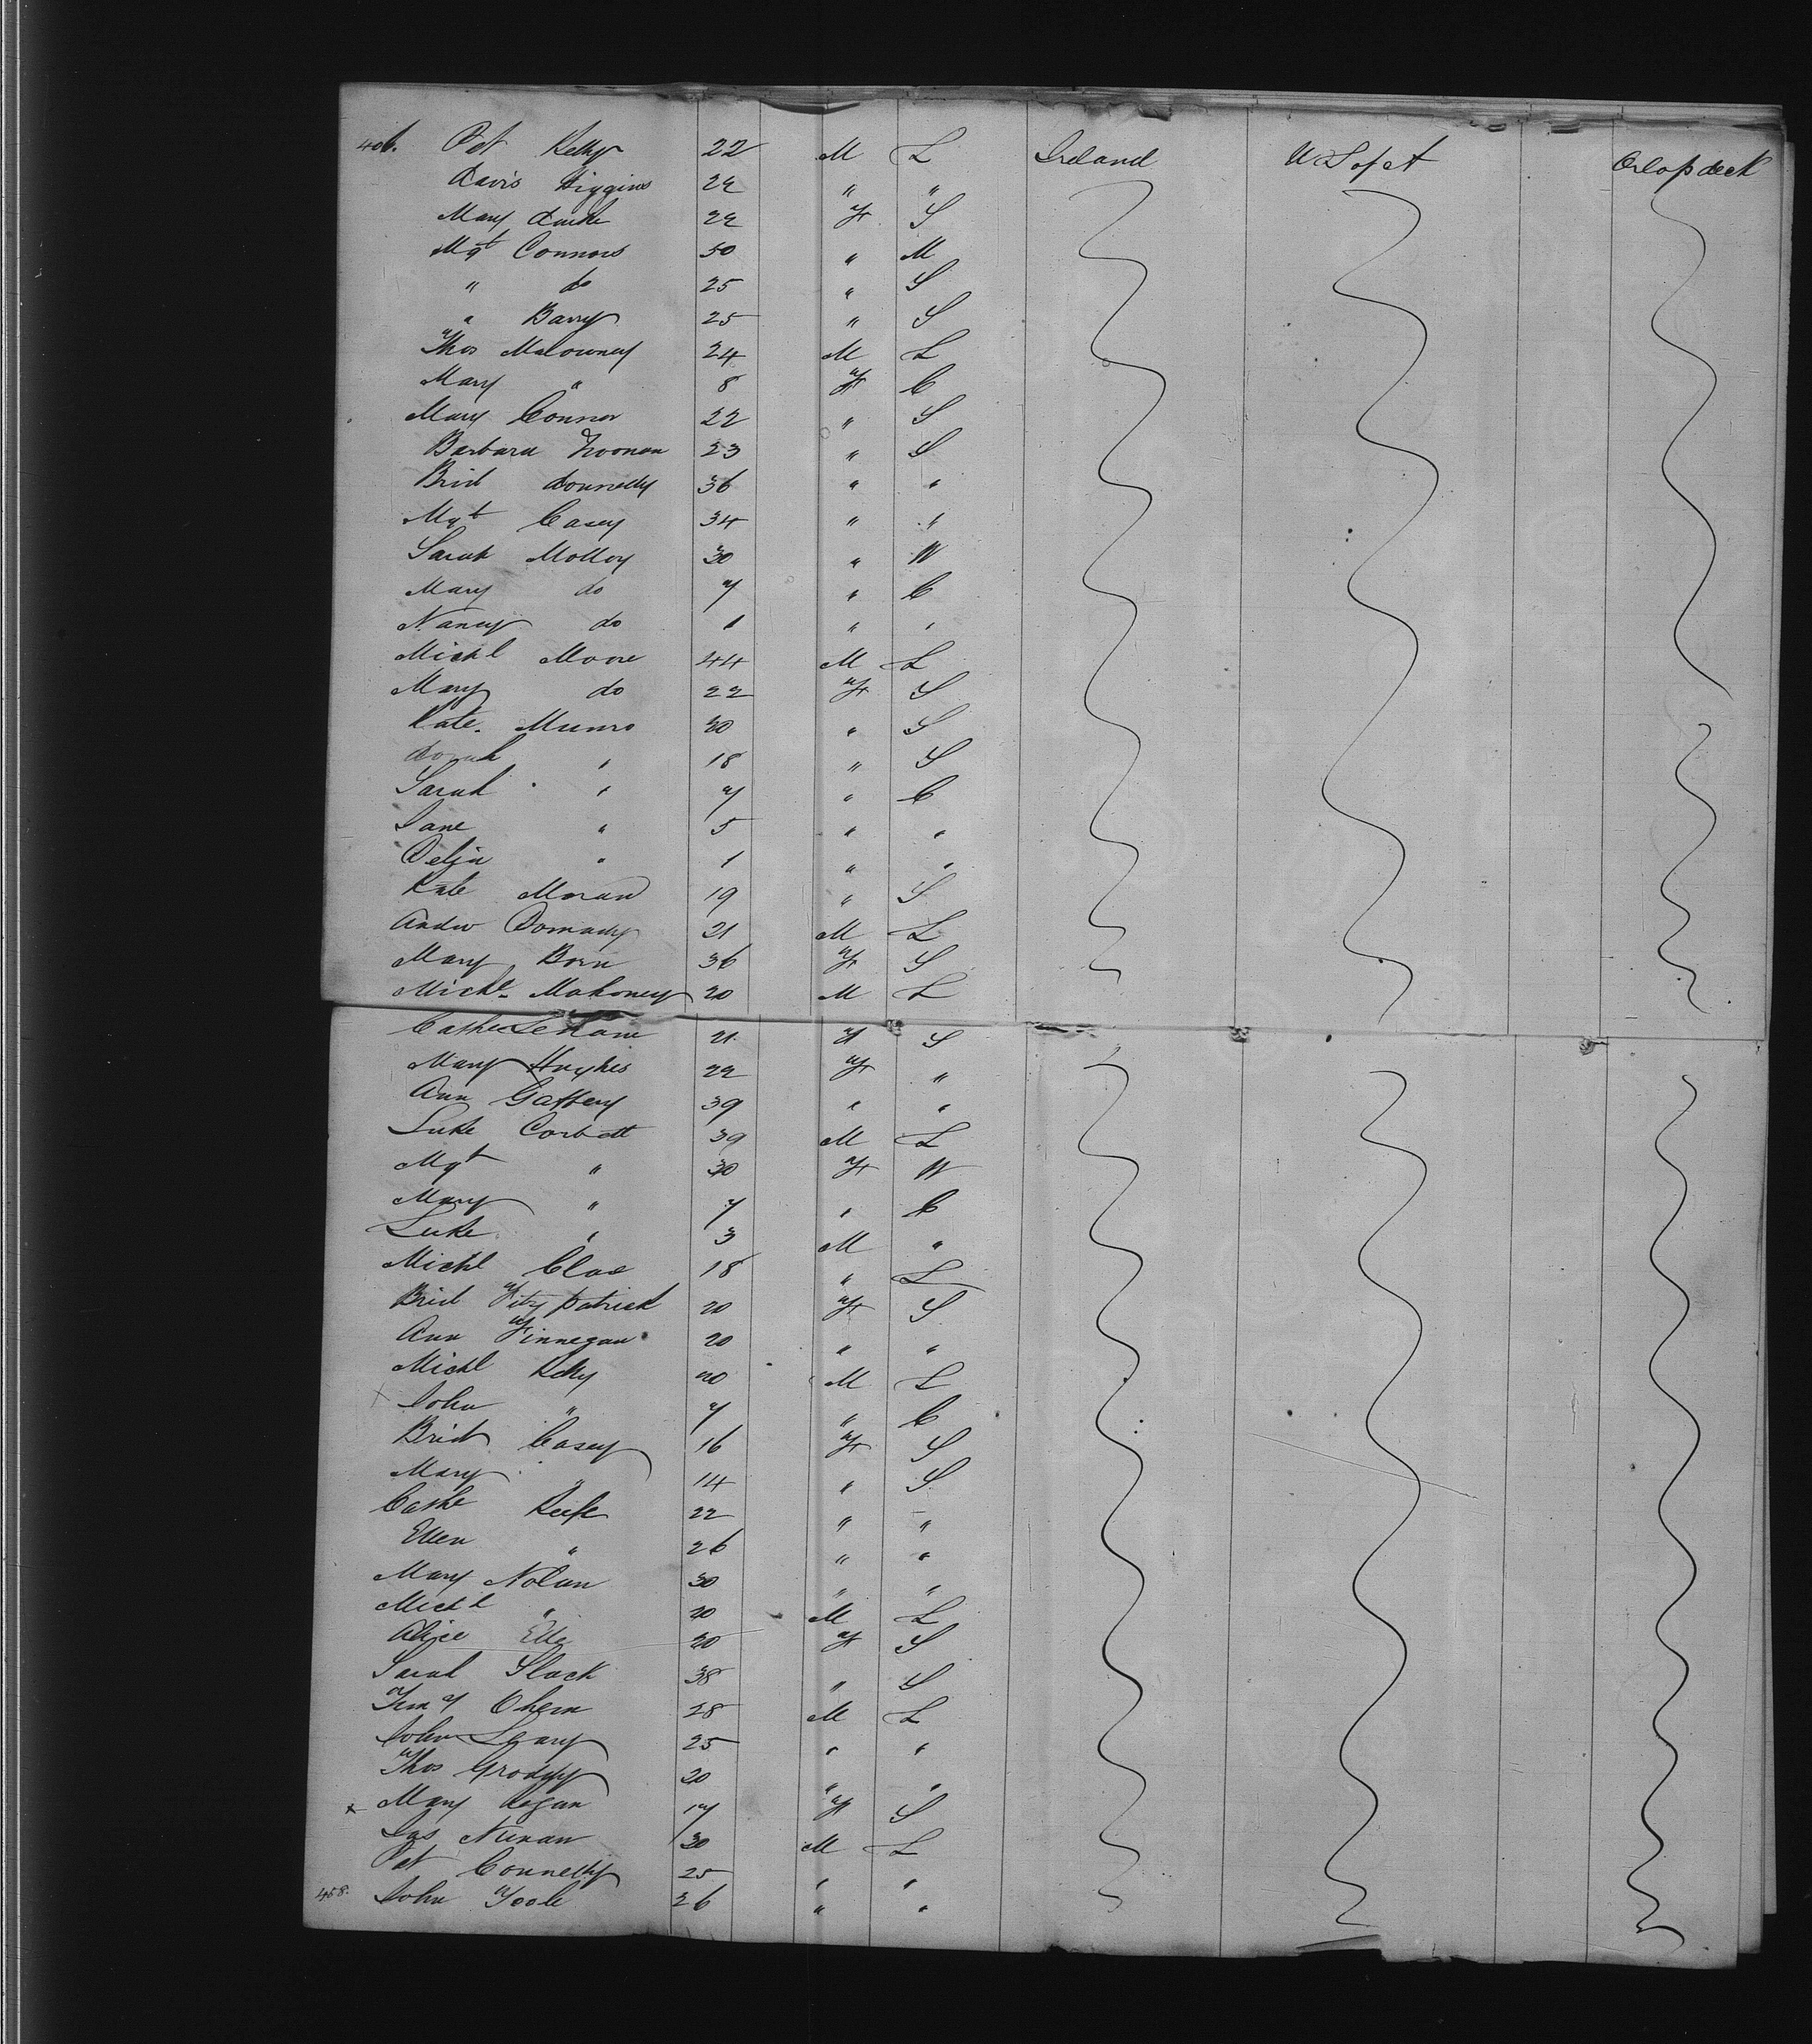 406. Pat Kelly 22 M L Ireland U S of A Orlop deck
Davis Higgins 22 " "
Mary Burke 22 F S
Mgt Connors 50 " M
" do 25 " S
" Barry 25 " S
Thos Malowney 24 M L
Mary " 8 F C
Mary Connor 22 " S
Barbara Noonan 23 " S
Brid Donnelly 36 " "
Mgt Casey 34 " "
Sarah Molloy 30 " W
Mary do 7 " C
Nancy do 1 " "
Michl Moore 44 M L
Mary do 22 F S
Kate Munro 20 " S
" 18 " S
Sarah " 7 " C
Jane " 5 " "
Delia " 1 " "
Kate Moran 19 " S
Andw 21 M L
Mary Born 36 F S
Michl Mahoney 20 M L
Cathe Lenane 21 F S
Mary Hughes 22 F "
Ann Gaffery 39 " "
Luke Corbett 39 M L
Mgt " 30 F W
Mary " 7 " C
Luke " 3 M "
Michl 18 " L
Brid Fitzpatrick 20 F S
Ann Finnegan 20 " "
Michl Kelly 20 M L
x John " 7 " C
Brid Casey 16 F S
Mary " 14 " S
Cathe Keefe 22 " "
Ellen " 26 " "
Mary Nolan 30 " "
Michl " 20 M L
Alice 20 F S
Sarah Slack 38 " S
Timy 28 M L
John Leary 25 " "
Thos Grady 20 " "
x Mary 17 F S
Jas Nunan 30 M L
Pat Connelly 25 " "
458. John Toole 26 " "